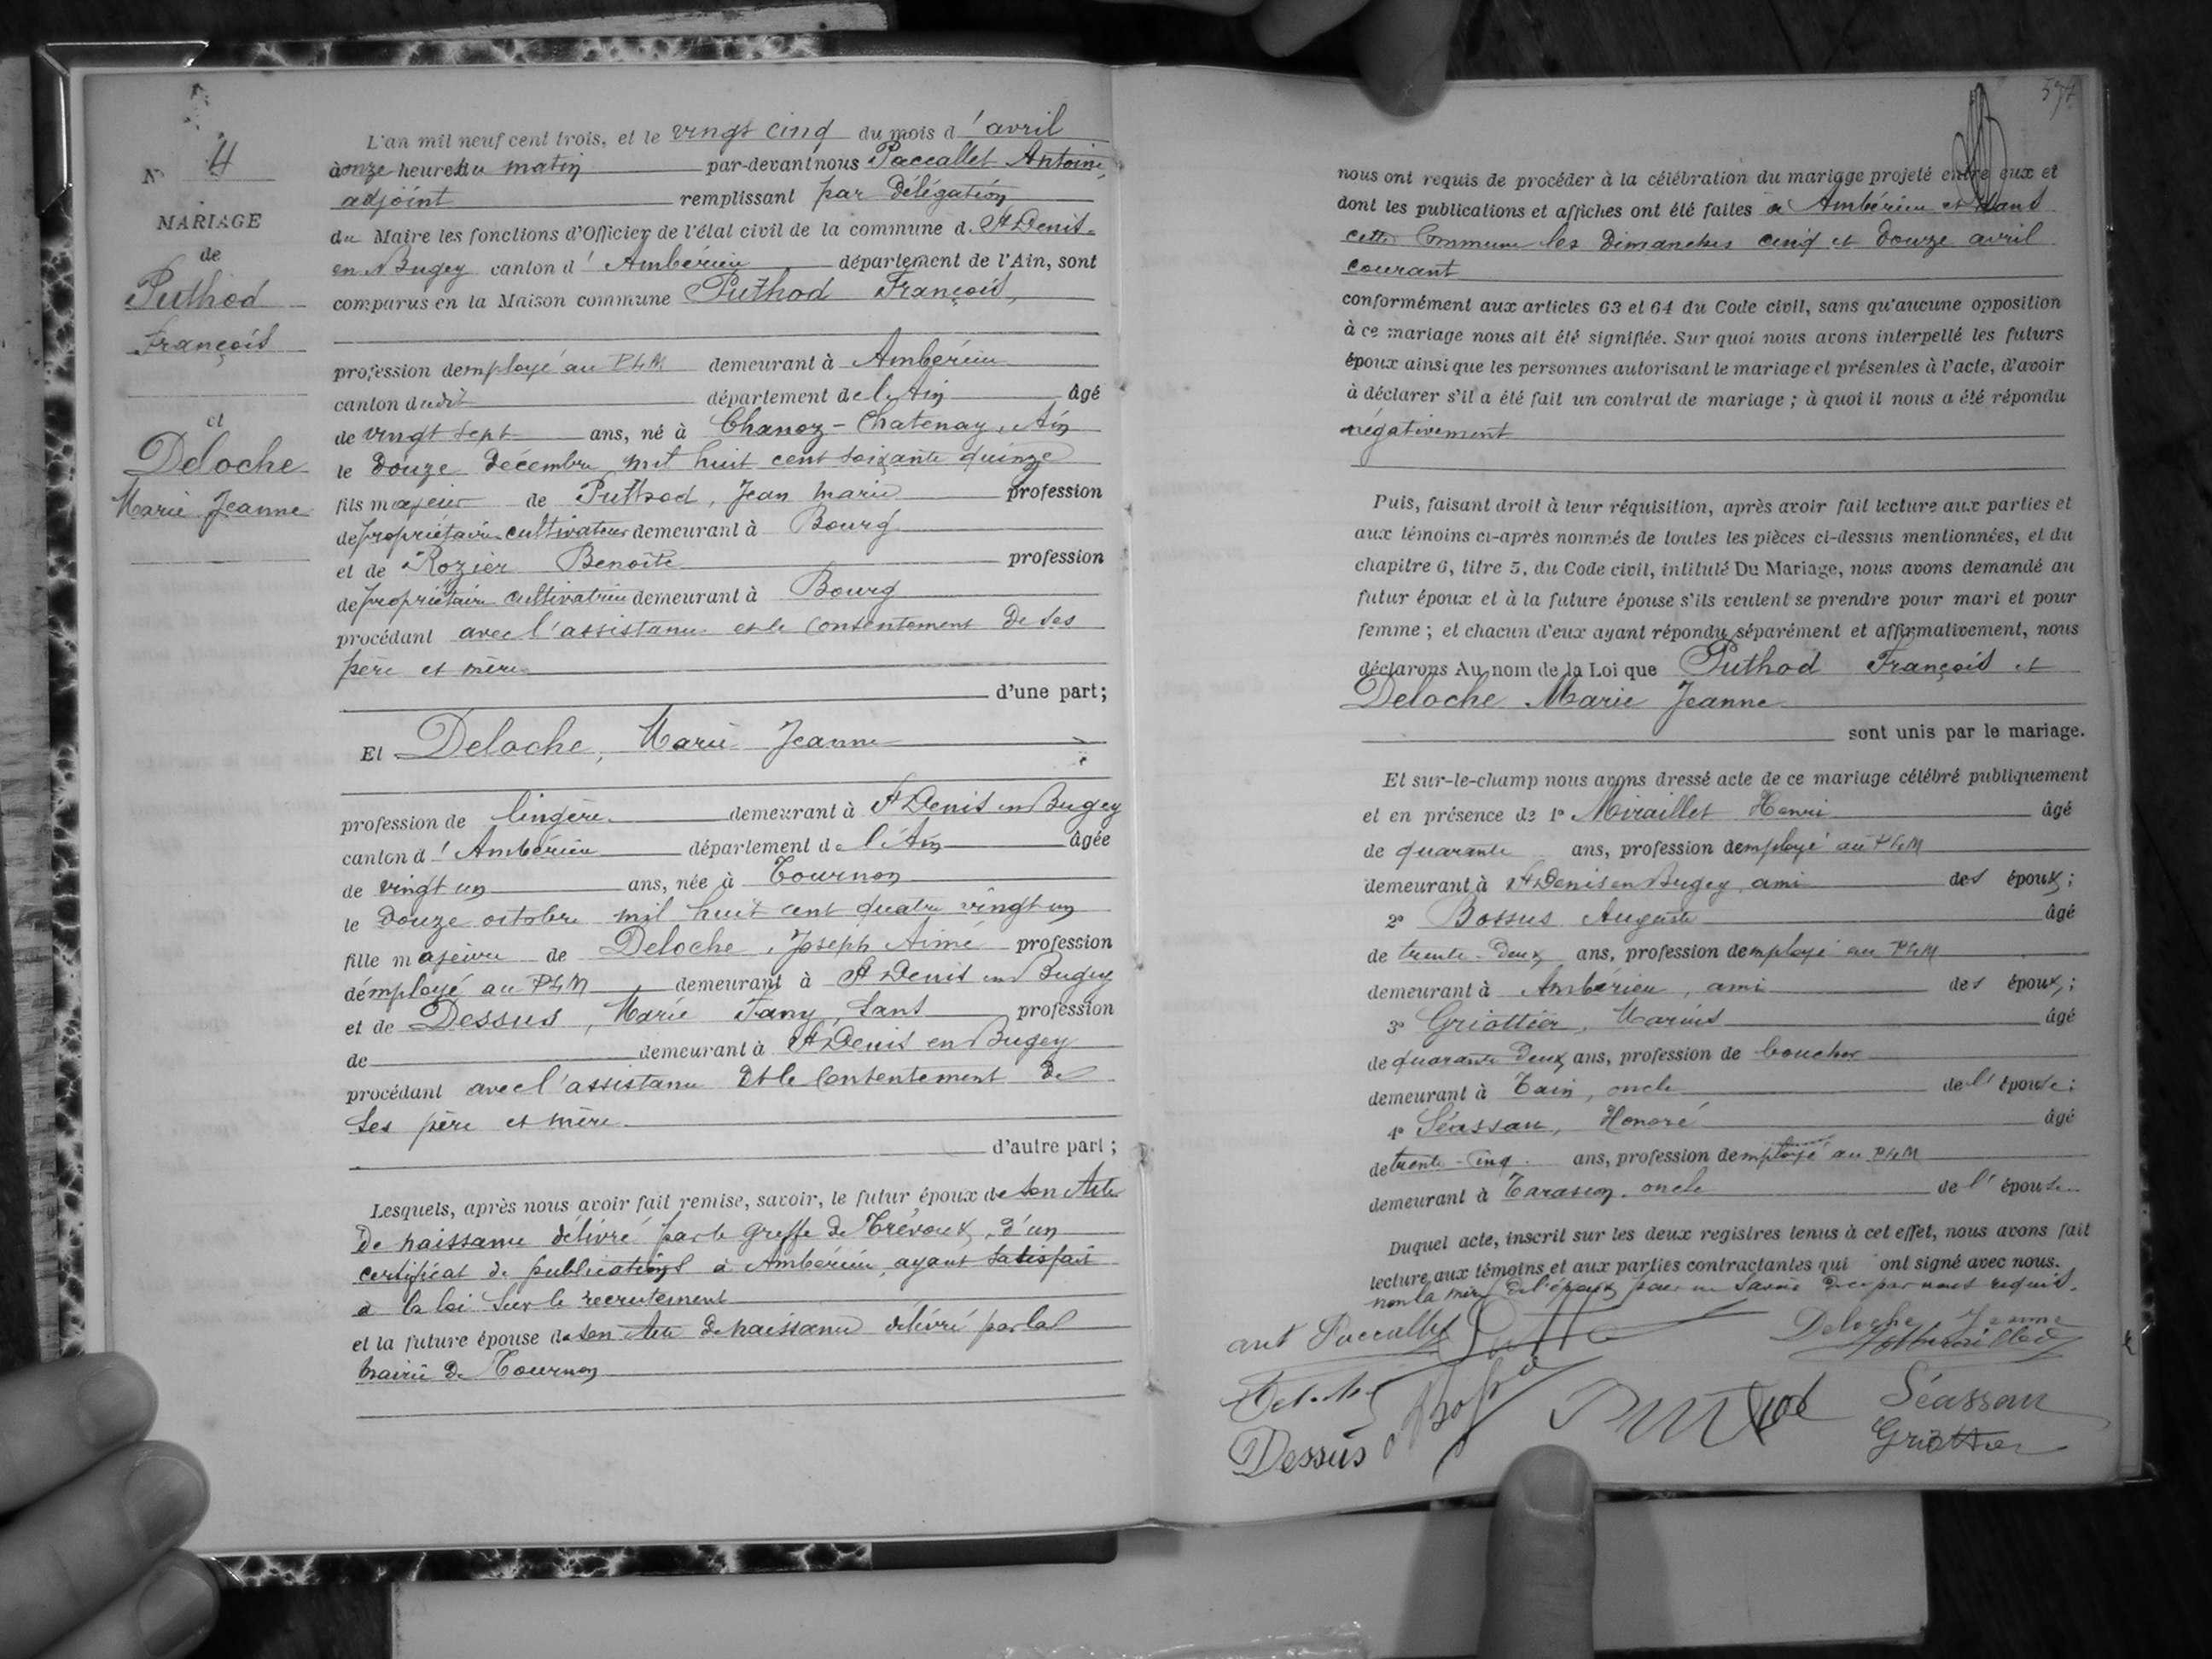 N° 4
MARIAGE
de
Puthod
François
et
Deloche
Marie Jeanne
L'an mil neuf cent trois, et le vingt cinq du mois d'avril
à onze heures du matin par-devant nous Paccallet Antoine,
adjoint remplissant par délégation
du Maire les fonctions d'Officier de l'état civil de la commune d. St Denis-
en Bugey canton d'Ambérieu département de l'Ain, sont
comparus en la Maison commune Puthod François,
profession d'employé au PLM demeurant à Ambérieu
canton dudit département de l'Ain âgé
de vingt sept ans, né à Chanoz-Chatenay, Ain
le douze décembre mil huit cent soixante quinze
fils majeur de Puthod, Jean Marie profession
de propriétaire cultivateur demeurant à Bourg
et de Rozier Benoîte profession
de propriétaire cultivatrice demeurant à Bourg
procédant avec l'assistance et le consentement de ses
père et mère
d'une part;
Et Deloche, Marie Jeanne
profession de lingère demeurant à St Denis en Bugey
canton d'Ambérieu département de l'Ain âgée
de vingt un ans, née à Tournon
le douze octobre mil huit cent quatre vingt un
fille majeure de Deloche, Joseph Aimé profession
d'employé au PLM demeurant à St Denis en Bugey
et de Dessus, Marie Fany, sans profession
de demeurant à St Denis en Bugey
procédant avec l'assistance et le consentement de
ses père et mère
d'autre part;
Lesquels, après nous avoir fait remise, savoir, le futur époux de son acte
de naissance délivré par le greffe de Trévoux, d'un
certificat de publications à Ambérieu, ayant satisfait
à la loi sur le recrutement
et la future épouse de son acte de naissance délivré par la
mairie de Tournon
574
nous ont requis de procéder à la célébration du mariage projeté entre eux et
dont les publications et affiches ont été faites à Ambérieu et dans
cette commune les dimanches cinq et douze avril
courant
conformément aux articles 63 et 64 du Code civil, sans qu'aucune opposition
à ce mariage nous ait été signifiée. Sur quoi nous avons interpellé les futurs
époux ainsi que les personnes autorisant le mariage et présentes à l'acte, d'avoir
à déclarer s'il a été fait un contrat de mariage; à quoi il nous a été répondu
négativement
Puis, faisant droit à leur réquisition, après avoir fait lecture aux parties et
aux témoins ci-après nommés de toutes les pièces ci-dessus mentionnées, et du
chapitre 6, titre 5, du Code civil, intitulé Du Mariage, nous avons demandé au
futur époux et à la future épouse s'ils veulent se prendre pour mari et pour
femme; et chacun d'eux ayant répondu séparément et affirmativement, nous
déclarons Au nom de la Loi que Puthod François et
Deloche Marie Jeanne
sont unis par le mariage.
Et sur-le-champ nous avons dressé acte de ce mariage célébré publiquement
et en présence de 1° Miraillet Henri âgé
de quarante ans, profession d'employé au PLM
demeurant à St Denis en Bugey, ami des époux;
2° Bossus Auguste âgé
de trente-deux ans, profession d'employé au PLM
demeurant à Ambérieu, ami des époux;
3° Griottier, Marius âgé
de quarante deux ans, profession de boucher
demeurant à Tain, oncle de l'épouse;
4° Séassau, Honoré âgé
de trente-cinq ans, profession d'employé au PLM
demeurant à Tarascon, oncle de l'épouse
Duquel acte, inscrit sur les deux registres tenus à cet effet, nous avons fait
lecture aux témoins et aux parties contractantes qui ont signé avec nous.
non la mère de l'époux pour ne savoir de ce par nous requis.
ant Paccallet
Deloche Jeanne
Séassau
Dessus
Griottier